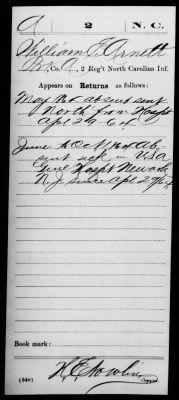 A 2 N.C.
William F. Arnett
Pvt, Co. A, 2 Reg't North Carolina Inf.
Appears on Returns as follows:
May 1864 absent sent
North from Hospt
Apl 29 64
June to Oct 1864 Ab
sent sick in USA
Genl Hospt Newark
N.J. since Apl 29/64
Book mark:
(546)